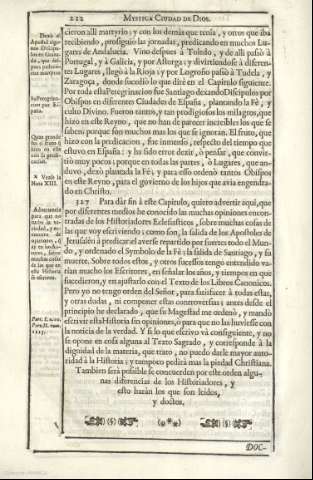 212 MYSTICA CIUDAD DE DIOS.
cieron allí martyrio; y con los demás que tenía, y otros que iba
recibiendo, prosiguió las jornadas, predicando en muchos Lu-
gares de Andalucia. Vino despues à Toledo, y de allí passò à
Portugal, y à Galicia, y por Astorga: y divirtiendose à diferen-
tes Lugares, llegò à la Rioja: y por Logroño passò à Tudela, y
Zaragoça, donde sucedió lo que diré en el Capitulo siguiente.
Por toda esta Peregrinacion fue Santiago dexando Discipulos por
Obispos en diferentes Ciudades de España, plantando la Fè, y
culto Divino. Fueron tantos, y tan prodigiosos los milagros, que
hizo en este Reyno, que no han de parecer increibles los que se
saben; porque son muchos mas los que se ignoran. El fruto, que
hizo con la predicacion, fue inmenso, respecto del tiempo que
estuvo en España: y ha sido error dezir, ò pensar, que convir-
tiò muy pocos; porque en todas las partes, ò Lugares, que an-
duvo, dexò plantada la Fè; y para esso ordenò tantos Obispos
en este Reyno, para el govierno de los hijos que avia engendra-
do en Christo.
327 Para dar fin à este Capitulo, quiero advertir aqui, que
por diferentes medios he conocido las muchas opiniones encon-
tradas de los Historiadores Eclesiasticos, sobre muchas cosas de
las que voy escriviendo; como son, la salida de los Apostoles de
Jerusalén à predicar: el averse repartido por suertes todo el Mun-
do, y ordenado el Symbolo de la Fè: la salida de Santiago, y su
muerte. Sobre todos estos, y otros sucessos tengo entendido va-
rían mucho los Escritores, en señalar los años, y tiempos en que
sucedieron, y en ajustarlo con el Texto de los Libros Canonicos.
Pero yo no tengo orden del Señor, para satisfacer à todas estas,
y otras dudas, ni componer estas controversias: antes desde el
principio he declarado, que su Magestad me ordenò, y mandò
escrivir esta Historia sin opiniones, ò para que no las huviesse con
la noticia de la verdad. Y si lo que escrivo vá consiguiente, y no
se opone en cosa alguna al Texto Sagrado, y corresponde à la
dignidad de la materia, que trato, no puedo darle mayor auto-
ridad à la Historia: y tampoco pedirà mas la piedad Christiana.
Tambien serà possible se concuerden por este orden algu-
nas diferencias de los Historiadores, y
esto haràn los que son leidos,
y doctos.
DOC-
Quan grande
fue el fruto q
hizo en ella
con la predi-
cacion.
X Veasè la
Nota XIII.